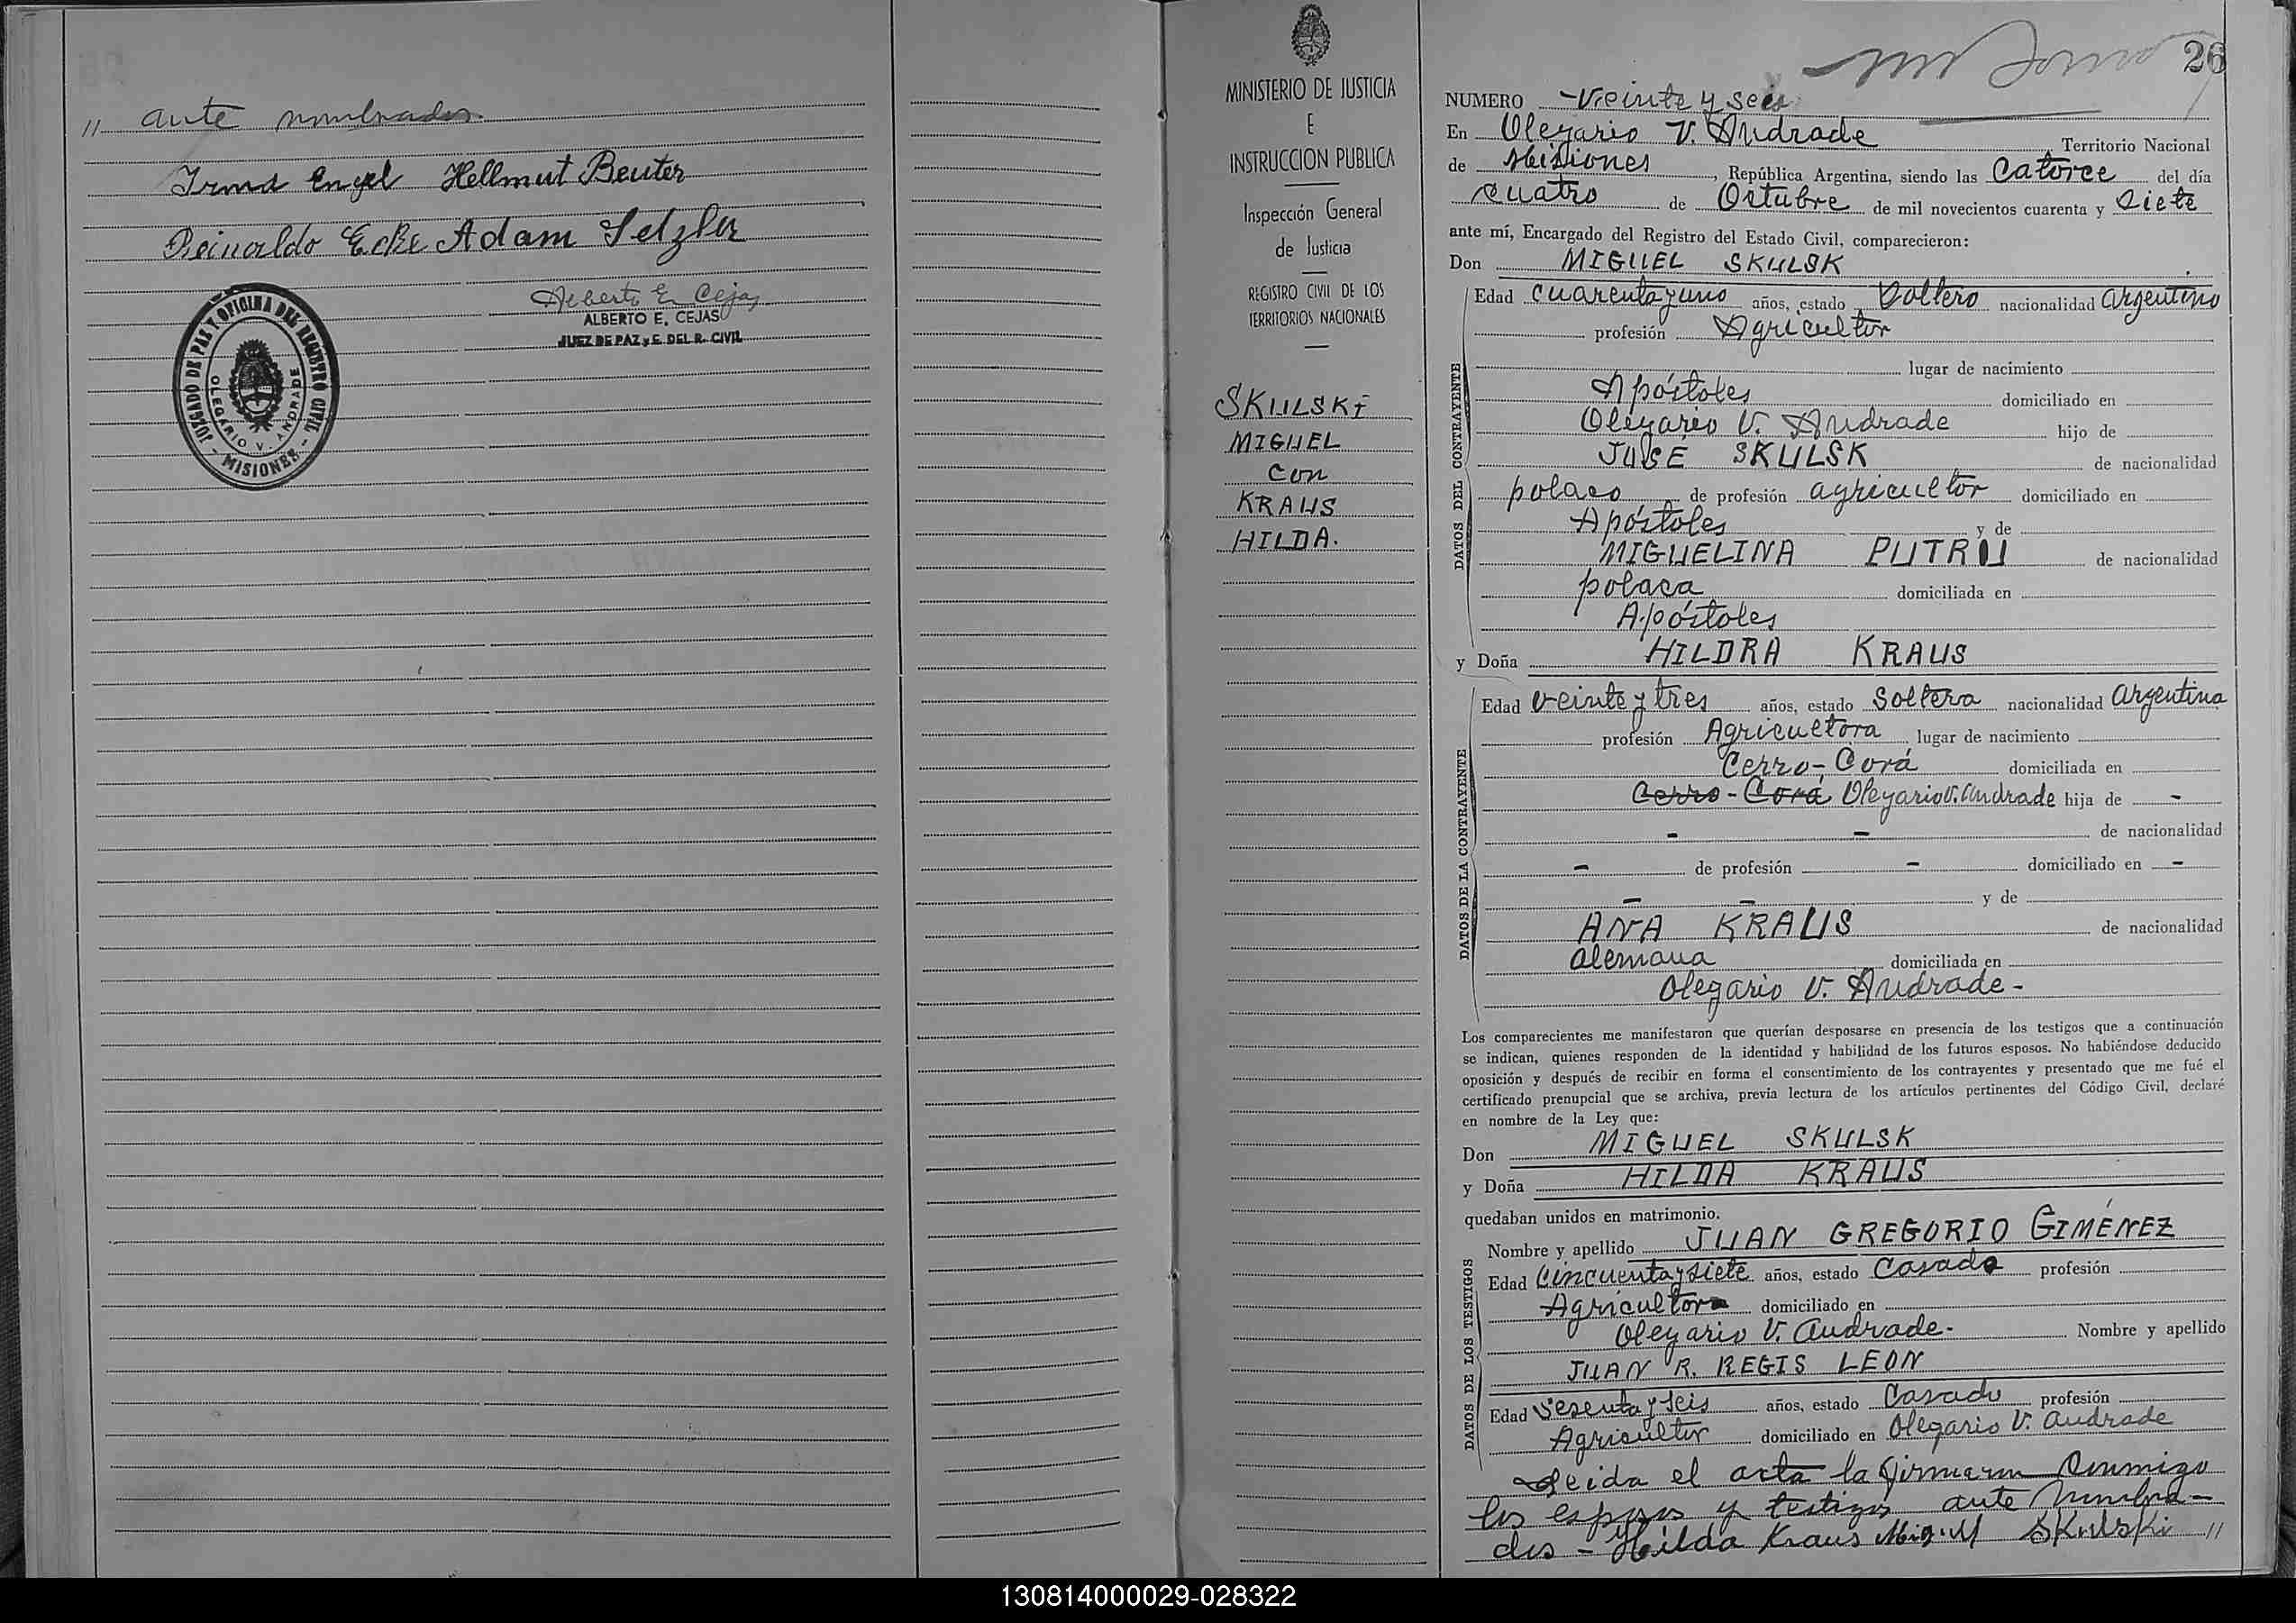 // ante nombrados.
Irma Engel Hellmut Beuter
Reinaldo Ecke Adam Setzler
Alberto E. Cejas
ALBERTO E. CEJAS
JUEZ DE PAZ y E. DEL R. CIVIL
JUZGADO DE PAZ Y OFICINA DEL REGISTRO CIVIL
OLEGARIO V. ANDRADE
- MISIONES -
MINISTERIO DE JUSTICIA
E
INSTRUCCION PUBLICA
Inspección General
de Justicia
REGISTRO CIVIL DE LOS
TERRITORIOS NACIONALES
SKULSKI
MIGUEL
con
KRAUS
HILDA.
26
NUMERO -Veinte y seis
En Olegario V. Andrade Territorio Nacional
de Misiones, República Argentina, siendo las Catorce del día
cuatro de Octubre de mil novecientos cuarenta y Siete
ante mí, Encargado del Registro del Estado Civil, comparecieron:
Don MIGUEL SKULSK
DATOS DEL CONTRAYENTE
Edad cuarenta y uno años, estado Soltero nacionalidad argentino
profesión Agricultor
lugar de nacimiento
Apóstoles domiciliado en
Olegario V. Andrade hijo de
JOSÉ SKULSK de nacionalidad
polaco de profesión agricultor domiciliado en
Apóstoles y de
MIGUELINA PUTRU de nacionalidad
polaca domiciliada en
Apóstoles
y Doña HILDRA KRAUS
DATOS DE LA CONTRAYENTE
Edad veinte y tres años, estado Soltera nacionalidad argentina
profesión Agricultora lugar de nacimiento
Cerro-Corá domiciliada en
Cerro-Corá Olegario V. Andrade hija de -
- - de nacionalidad
- de profesión - domiciliado en -
- - y de
ANA KRAUS de nacionalidad
alemana domiciliada en
Olegario V. Andrade -
Los comparecientes me manifestaron que querían desposarse en presencia de los testigos que a continuación
se indican, quienes responden de la identidad y habilidad de los futuros esposos. No habiéndose deducido
oposición y después de recibir en forma el consentimiento de los contrayentes y presentado que me fué el
certificado prenupcial que se archiva, previa lectura de los artículos pertinentes del Código Civil, declaré
en nombre de la Ley que:
Don MIGUEL SKULSK
y Doña HILDA KRAUS
quedaban unidos en matrimonio.
DATOS DE LOS TESTIGOS
Nombre y apellido JUAN GREGORIO GIMÉNEZ
Edad Cincuenta y siete años, estado Casado profesión
Agricultor domiciliado en
Olegario V. Andrade. Nombre y apellido
JUAN R. REGIS LEON
Edad Sesenta y seis años, estado Casado profesión
Agricultor domiciliado en Olegario V. Andrade
Leida el acta la firmaron conmigo
los esposos y testigos ante nombra-
dos - Hilda Kraus Miguel Skulski //
130814000029-028322